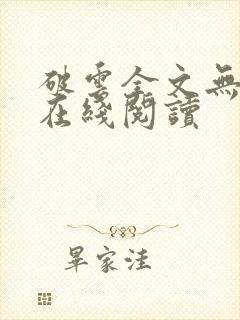 破雲全文無
在綫閱讀
畢家洼